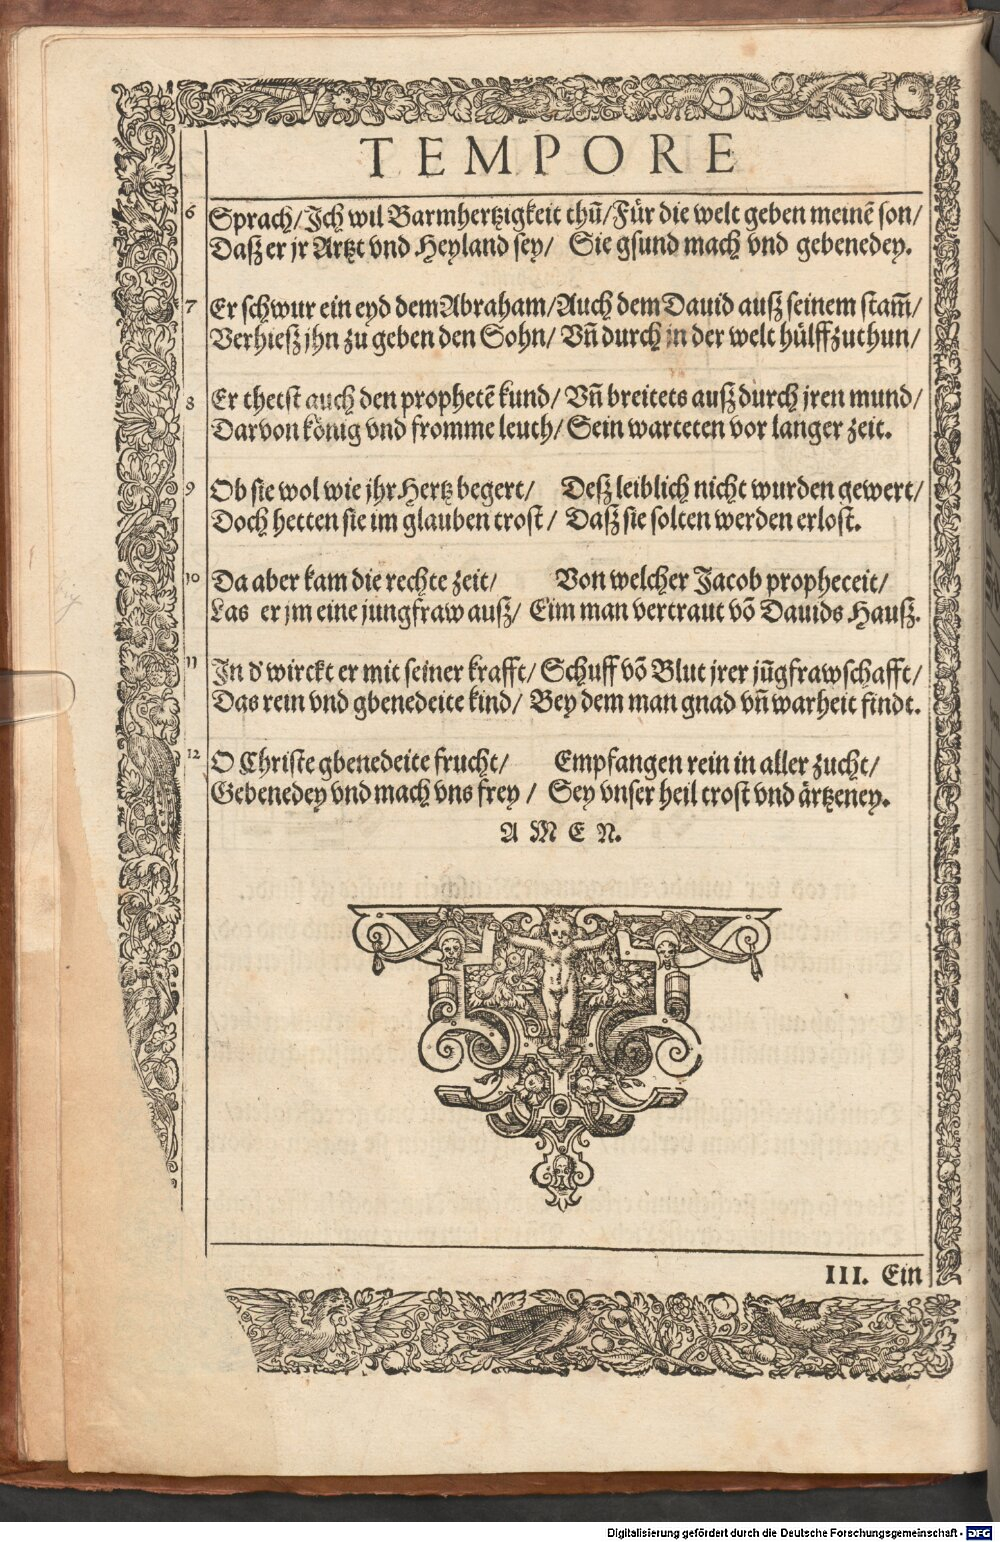 TEMPORE
6 Sprach/Ich wil Barmhertzigkeit thũ/Für die welt geben meinẽ son/
Dasz er jr Artzt vnd Heyland sey/ Sie gsund mach vnd gebenedey.
7 Er schwur ein eyd dem Abraham/Auch dem Dauid ausz seinem stam̃/
Verhiesz jhn zu geben den Sohn/ Vñ durch in der welt hülff zuthun/
8 Er thetst auch den prophetẽ kund/ Vñ breitets ausz durch jren mund/
Darvon könig vnd fromme leuth/ Sein warteten vor langer zeit.
9 Ob sie wol wie jhr Hertz begert/ Desz leiblich nicht wurden gewert/
Doch hetten sie im glauben trost/ Dasz sie solten werden erlost.
10 Da aber kam die rechte zeit/ Von welcher Jacob propheceit/
Las er jm eine jungfraw ausz/ Eim man vertraut võ Dauids Hausz.
11 In d' wirckt er mit seiner krafft/ Schuff võ Blut jrer jũgfrawschafft/
Das rein vnd gbenedeite kind/ Bey dem man gnad vñ warheit findt.
12 O Christe gbenedeite frucht/ Empfangen rein in aller zucht/
Gebenedey vnd mach vns frey/ Sey vnser heil trost vnd ärtzeney.
A M E N.
III. Ein
Digitalisierung gefördert durch die Deutsche Forschungsgemeinschaft - DFG